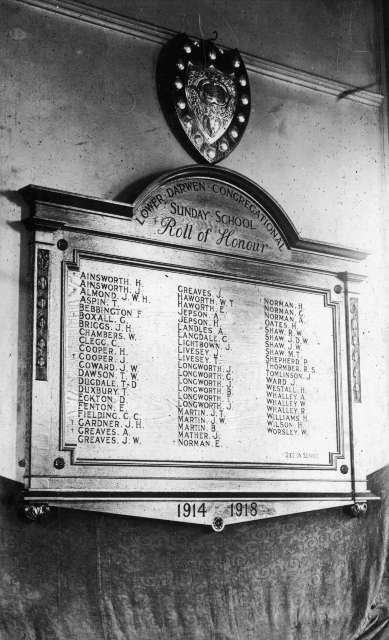 LOWER DARWEN CONGREGATIONAL
SUNDAY SCHOOL
Roll of Honour
AINSWORTH. H.
AINSWORTH. J.
ALMOND. J. W. H.
ASPIN. T.
BEBBINGTON. F
BOXALL. G.
BRIGGS. J. H.
CHAMBERS. W.
CLEGG. C.
COOPER. H.
COOPER. J.
COWARD. J. W
DAWSON. T. W.
DUGDALE. T. D
DUXBURY. T.
ECKTON. D.
FENTON. E.
FIELDING. C. C.
GARDNER. J. H.
GREAVES. A.
GREAVES. J. W.
GREAVES. J.
HAWORTH. W. T
HAWORTH. E.
JEPSON. A.
JEPSON. H.
LANDLES. A.
LANGDALE. G.
LIGHTBOWN. J.
LIVESEY. J.
LIVESEY. T.
LONGWORTH. J.
LONGWORTH. C.
LONGWORTH. R.
LONGWORTH. B.
LONGWORTH. J.
MARTIN. J. T.
MARTIN. J. W.
MARTIN. B.
MATHER. J.
NORMAN. E.
NORMAN. H.
NORMAN. C.
NORMAN. A.
OATES. H.
SHAW. R. W.
SHAW. J. D. W
SHAW. J. W.
SHAW. M. T.
SHEPHERD. P.
THORMBER. R. S.
TOMLINSON. J.
WARD. J.
WESTALL. H.
WHALLEY. A.
WHALLEY. W
WHALLEY. R.
WILLIAMS. H.
WILSON. H.
WORSLEY. W.
DIED IN SERVICE
1914 1918